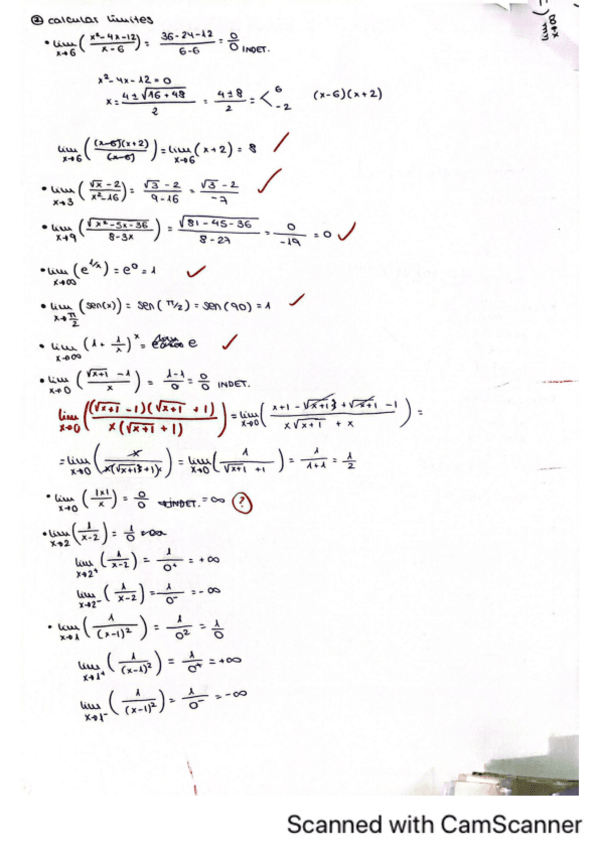 ② calcular límites
• lim x→6 (x²-4x-12 / x-6) = 36-24-12 / 6-6 = 0/0 INDET.
x²-4x-12=0
x = 4±√16+48 / 2 = 4±8 / 2 = < 6 -2 (x-6)(x+2)
lim x→6 ((x-6)(x+2) / (x-6)) = lim x→6 (x+2) = 8
• lim x→3 (√x-2 / x²-16) = √3-2 / 9-16 = √3-2 / -7
• lim x→9 (√x²-5x-36 / 8-3x) = √81-45-36 / 8-27 = 0 / -19 = 0
• lim x→∞ (e^1/x) = e⁰ = 1
• lim x→π/2 (sen(x)) = sen(π/2) = sen(90) = 1
• lim x→∞ (1+ 1/x)^x = e
• lim x→0 (√x+1 -1 / x) = 1-1 / 0 = 0/0 INDET.
lim x→0 ((√x+1 -1)(√x+1 +1) / x(√x+1 +1)) = lim x→0 (x+1-√x+1+√x+1 -1 / x√x+1 + x) =
= lim x→0 (x / x(√x+1+1)) = lim x→0 (1 / √x+1 +1) = 1 / 1+1 = 1/2
• lim x→0 (|x| / x) = 0/0 INDET. = ∞ ?
• lim x→2 (1 / x-2) = 1/0
lim x→2⁺ (1 / x-2) = 1 / 0⁺ = +∞
lim x→2⁻ (1 / x-2) = 1 / 0⁻ = -∞
• lim x→1 (1 / (x-1)²) = 1 / 0² = 1/0
lim x→1⁺ (1 / (x-1)²) = 1 / 0⁺ = +∞
lim x→1⁻ (1 / (x-1)²) = 1 / 0⁻ = -∞
Scanned with CamScanner